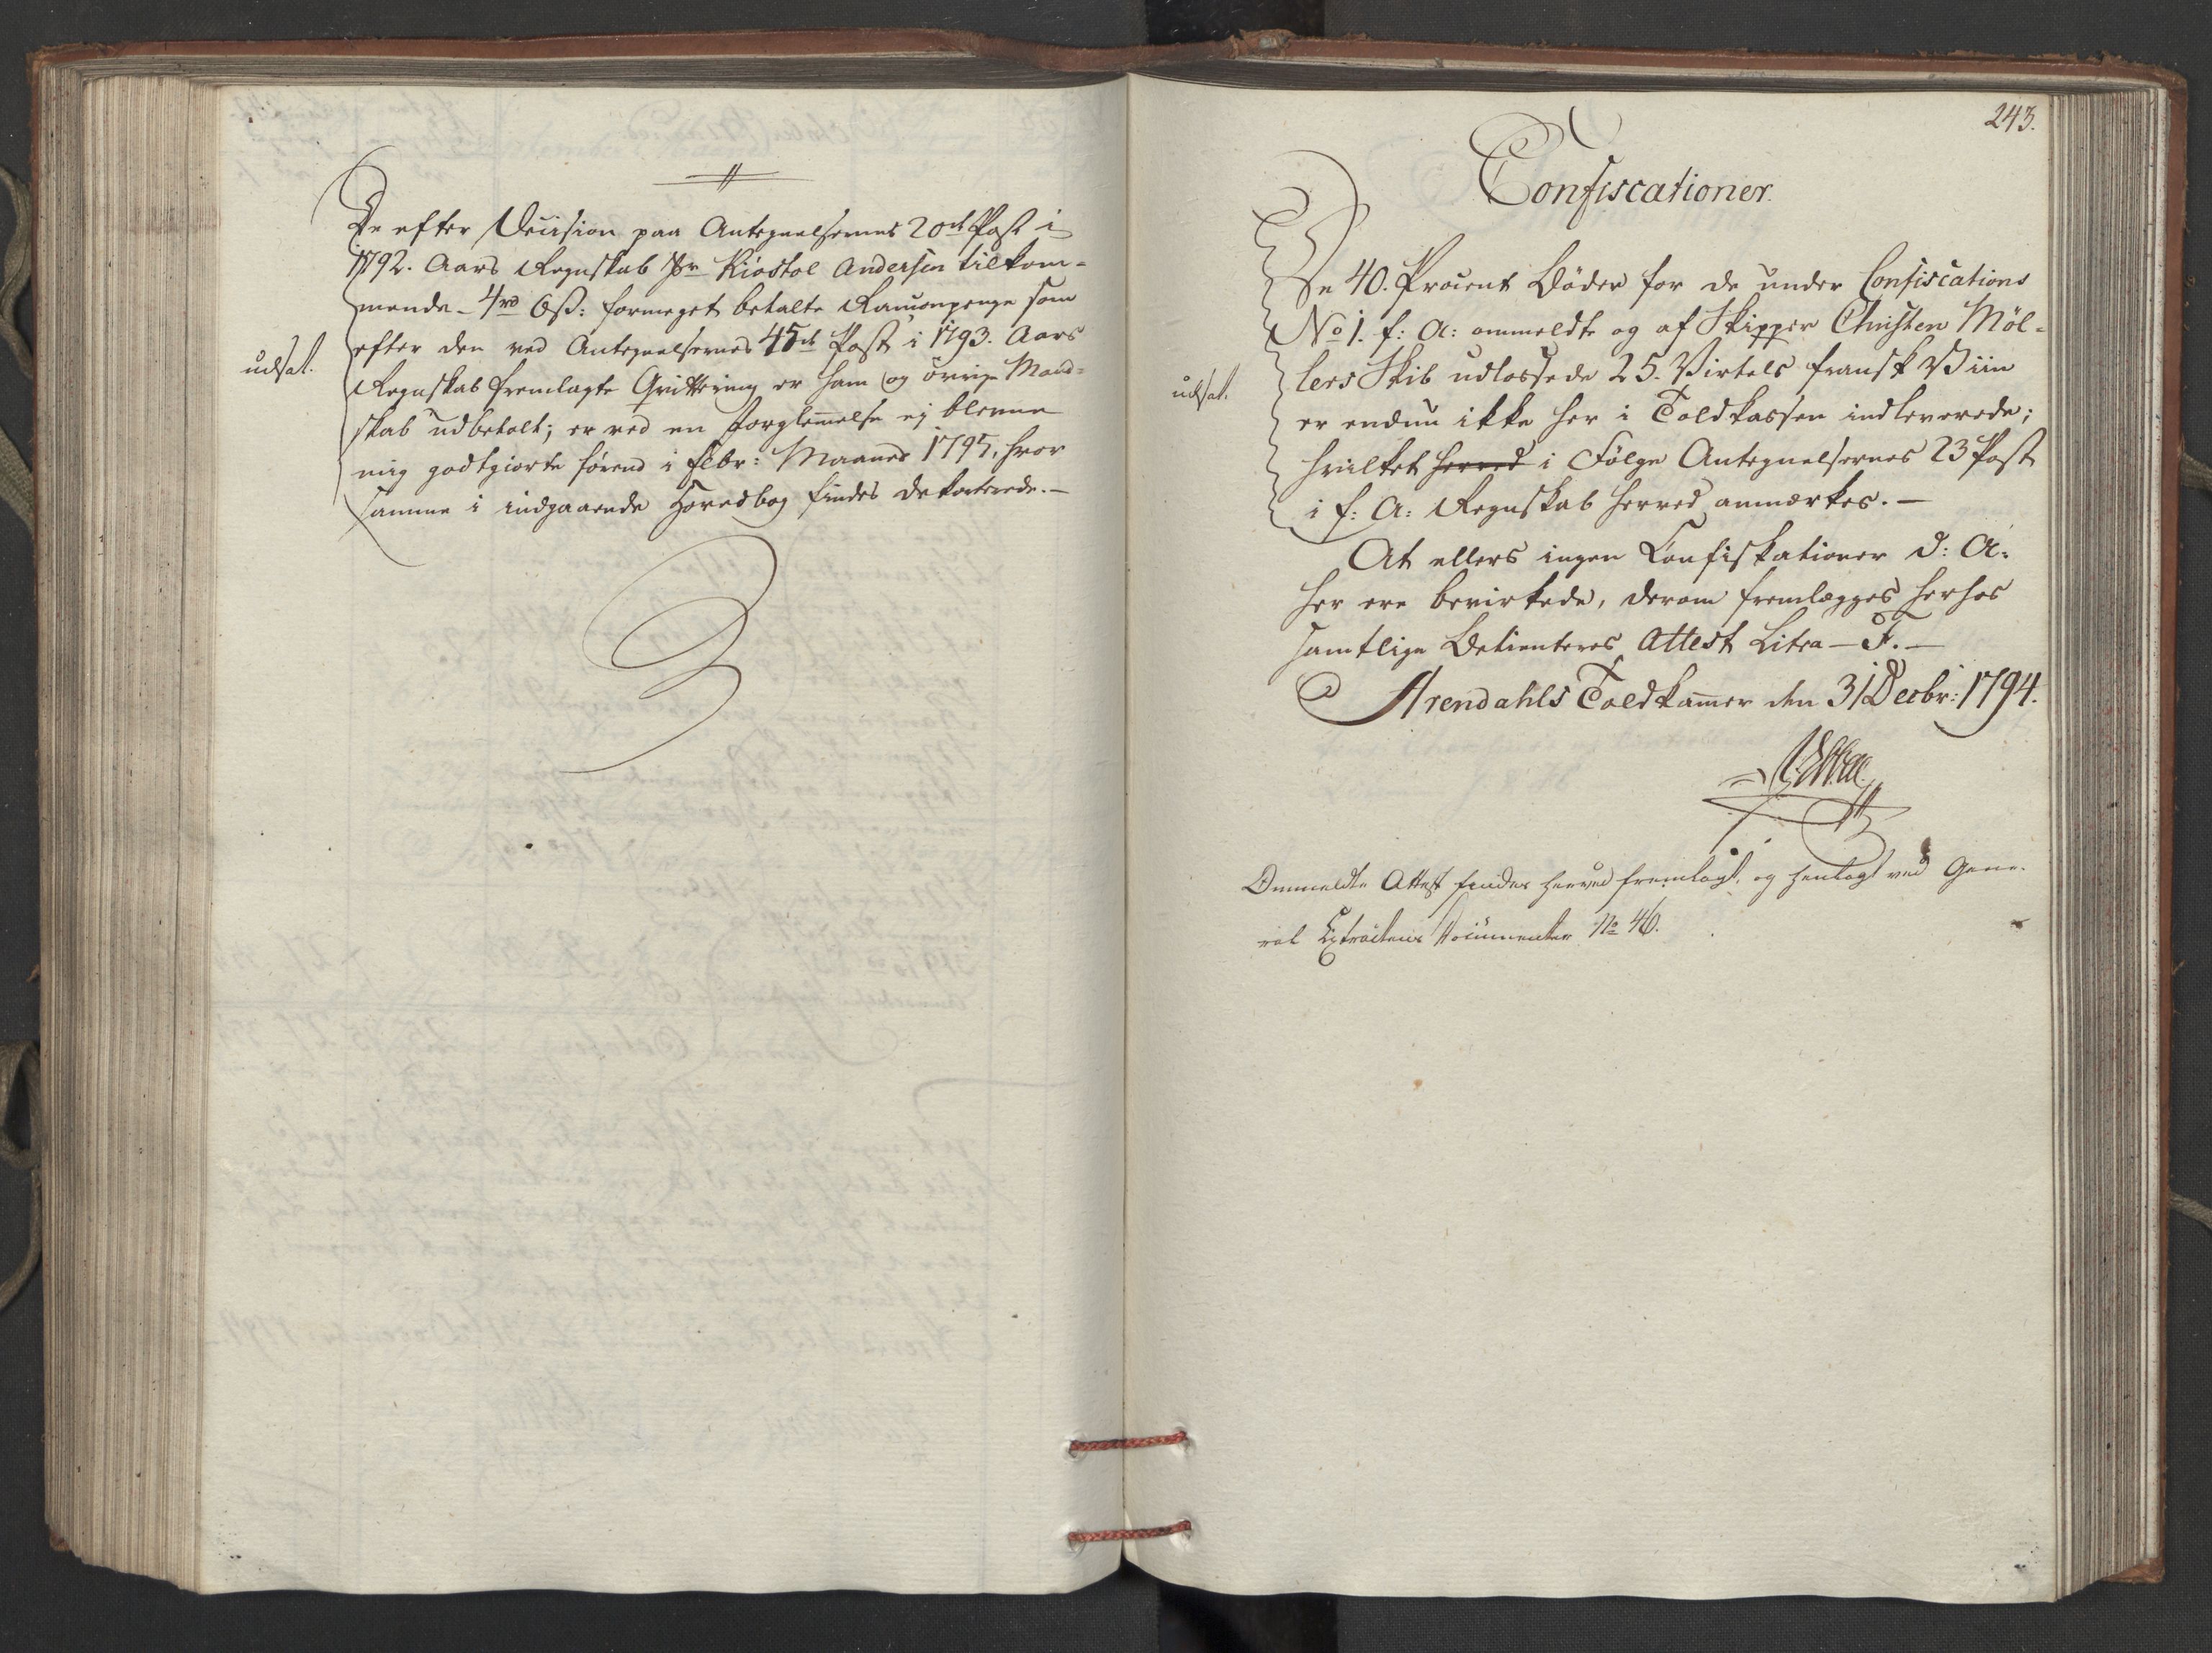 De efter Decision paa Antegnelsernes 20de Post i
1792. Aars Regnskab Sr Kiøstol Andersen tilkom-
mende - 4rd 6ß: formeget betalte Rancionpenge som
udsat.
efter den ved Antegnelsernes 45de Post i 1793. Aars
Regnskab fremlagte Qvittering er ham og øvrige Mand-
skab udbetalt; er ved en Forglemelse ej blevne
mig godtgiorte førend i Febr: Maaned 1795, hvor
samme i indgaaende Hovedbog findes decorterede. -
243.
Confiscationer.
De 40. Procent Bøder for de under Confiscations
No 1. f: A: ommeldte og af Skipper Christen Möl-
udsat.
lers Skib udlossede 25. Virtels fransk Viin
er endnu ikke her i Toldkassen indleverede;
hvilket herved i Følge Antegnelsernes 23 Post
i f: A: Regnskab herved anmærkes. -
At ellers ingen Confiskationer d: A:
her ere bevirkede, derom fremlægges herhos
samtlige Betienteres Attest Litra - F. -
Arendahls Toldkamer den 31 Decbr: 1794.
Ommeldte Attest findes herved fremlagt, og henlagt ved Gene-
ral Extractens Documenter No 46.